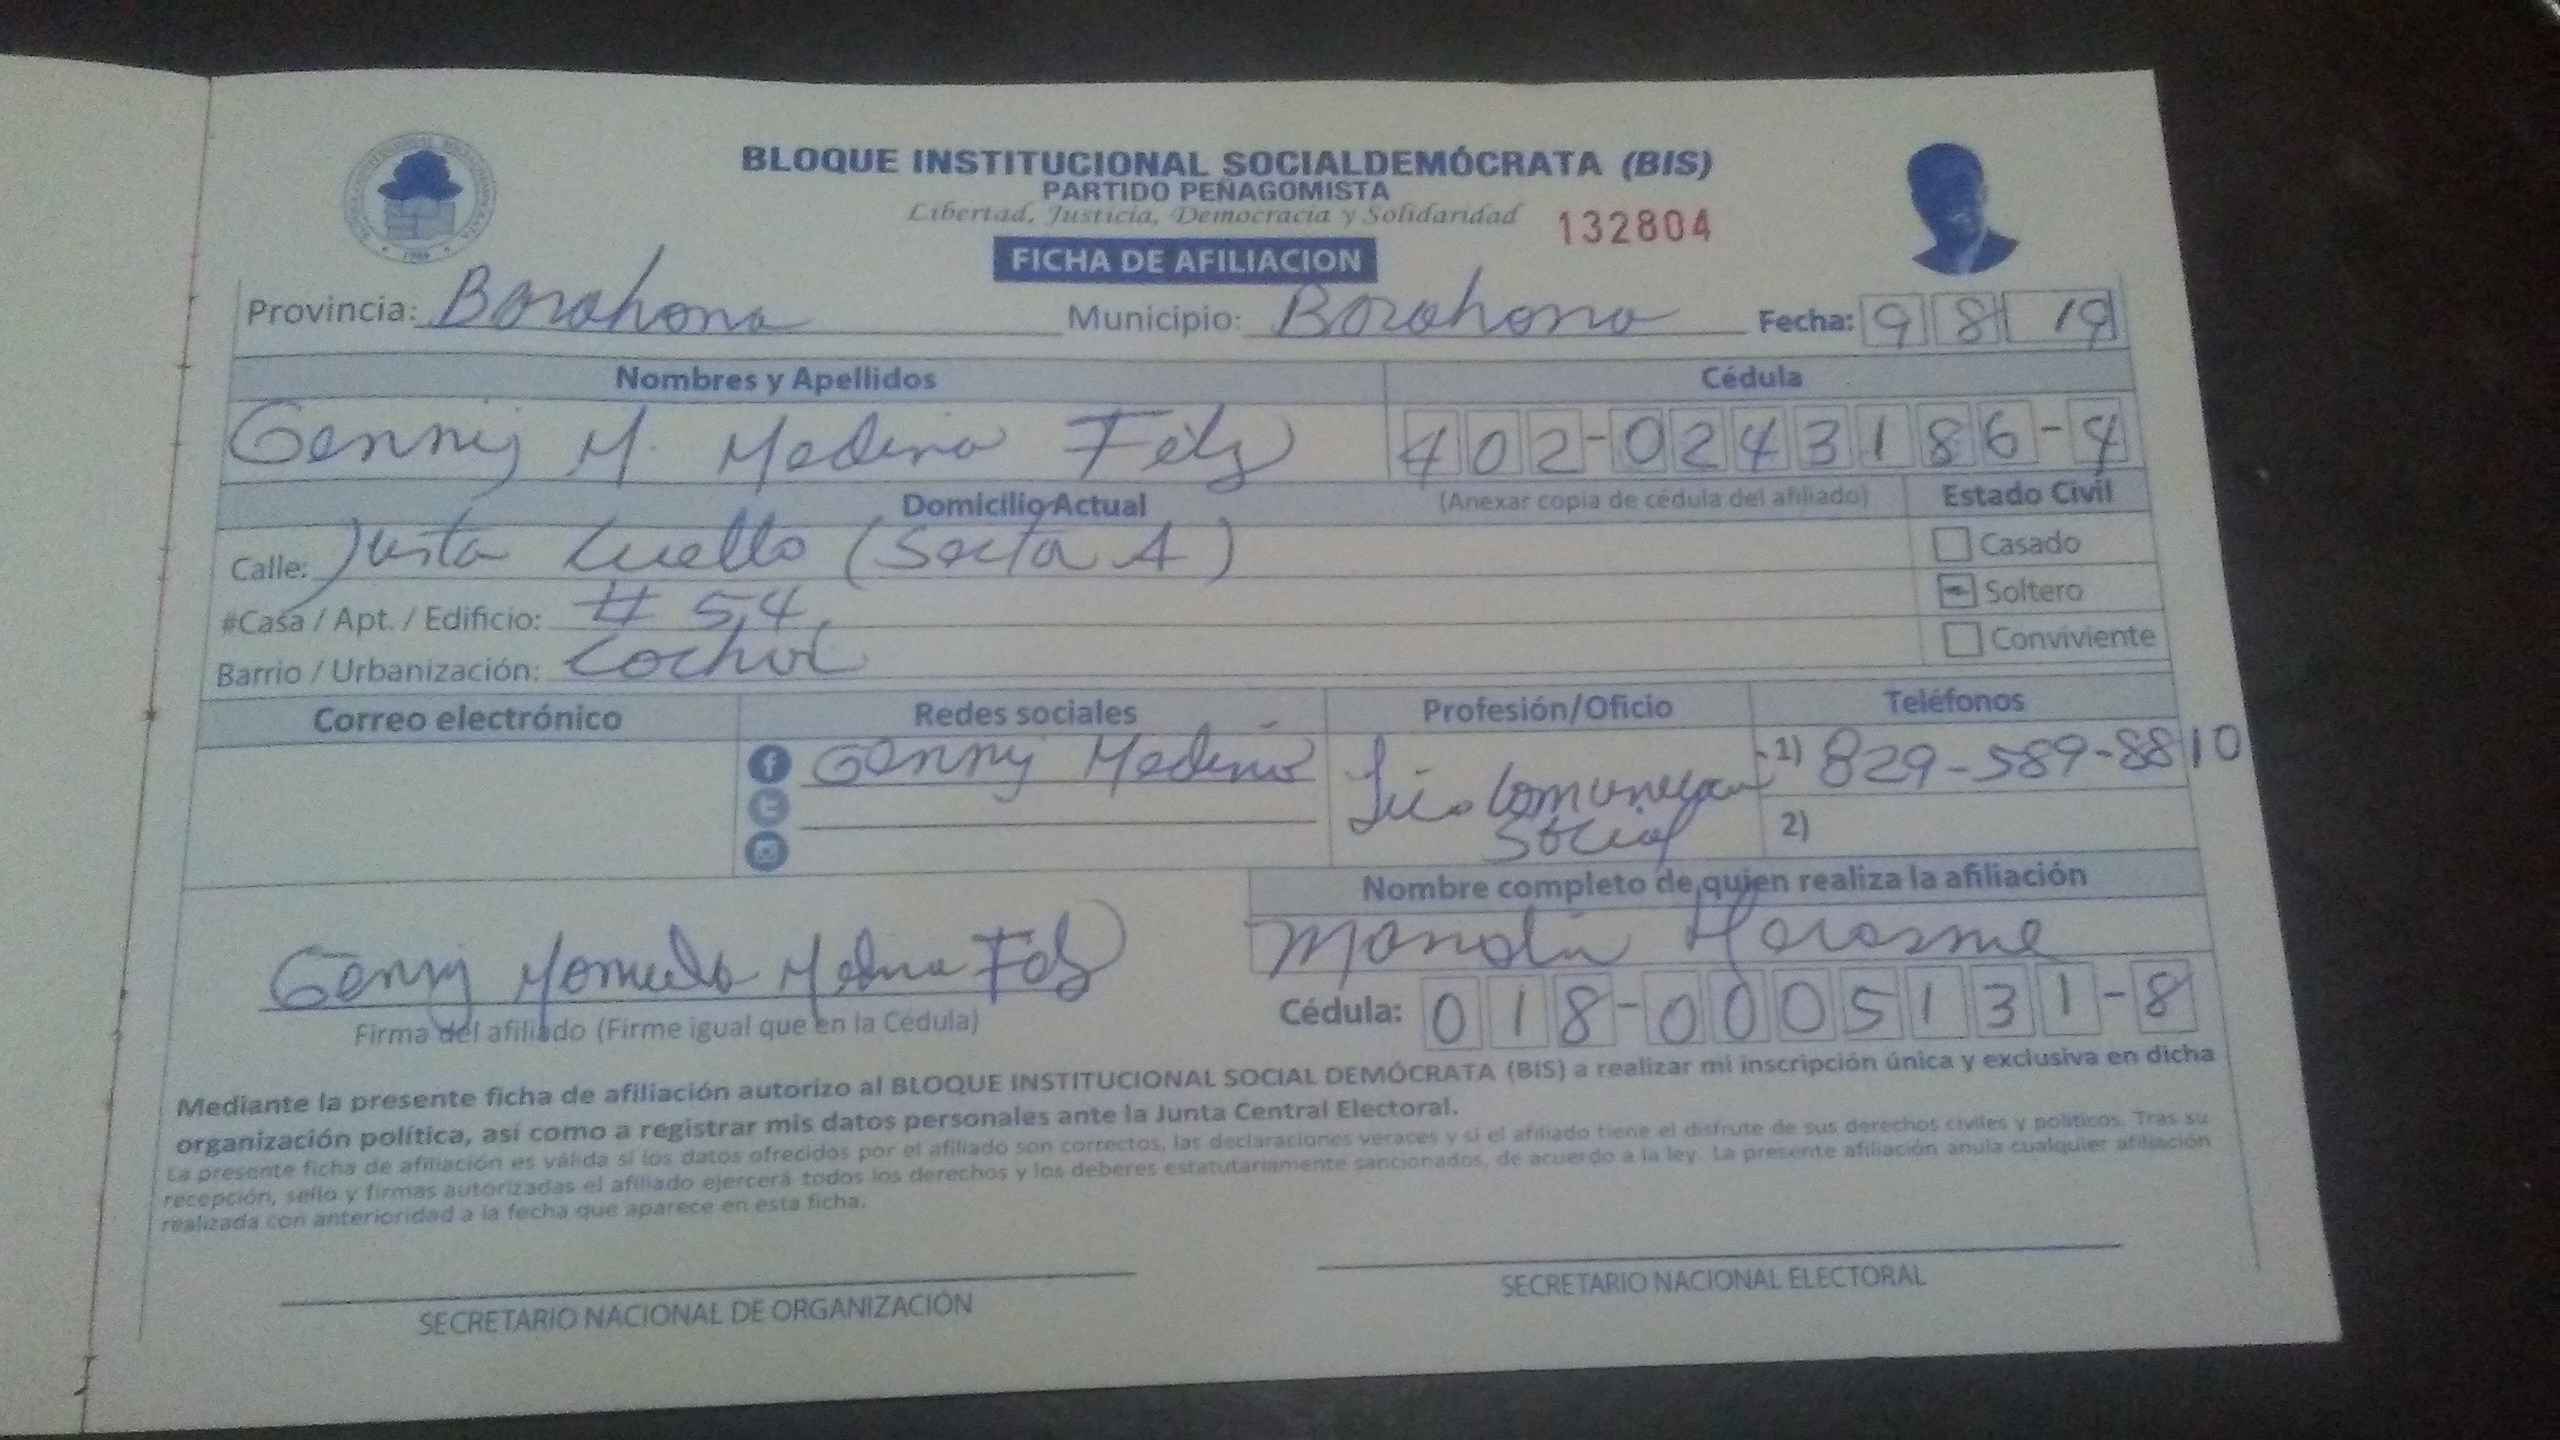 BLOQUE INSTITUCIONAL SOCIALDEMÓCRATA (BIS)
PARTIDO PEÑAGOMISTA
Libertad, Justicia, Democracia y Solidaridad 132804
FICHA DE AFILIACION
Provincia: Barahona Municipio: Barahona Fecha: 9 8 19
Nombres y Apellidos Cédula
Genny M. Medina Féliz 402-0243186-4
Domicilio Actual (Anexar copia de cédula del afiliado) Estado Civil
Calle: Justa Cuello (Sexta A) Casado
#Casa / Apt. / Edificio: # 54 Soltero
Barrio / Urbanización: Conviviente
Correo electrónico Redes sociales Profesión/Oficio Teléfonos
Genny Medina Lic. Comunicación 1) 829-589-8810
Social 2)
Nombre completo de quien realiza la afiliación
Genny Medina Feliz
Firma del afiliado (Firme igual que en la Cédula) Cédula: 018-0005131-8
Mediante la presente ficha de afiliación autorizo al BLOQUE INSTITUCIONAL SOCIAL DEMÓCRATA (BIS) a realizar mi inscripción única y exclusiva en dicha
organización política, así como a registrar mis datos personales ante la Junta Central Electoral.
La presente ficha de afiliación es válida si los datos ofrecidos por el afiliado son correctos, las declaraciones veraces y si el afiliado tiene el disfrute de sus derechos civiles y políticos. Tras su
recepción, sello y firmas autorizadas el afiliado ejercerá todos los derechos y los deberes estatutariamente sancionados, de acuerdo a la ley. La presente afiliación anula cualquier afiliación
realizada con anterioridad a la fecha que aparece en esta ficha.
SECRETARIO NACIONAL DE ORGANIZACIÓN SECRETARIO NACIONAL ELECTORAL